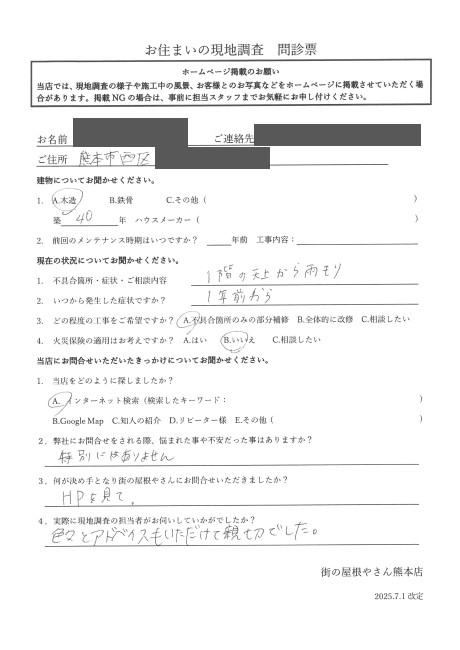 お住まいの現地調査　問診票
ホームページ掲載のお願い
当店では、現地調査の様子や施工中の風景、お客様とのお写真などをホームページに掲載させていただく場
合があります。掲載 NG の場合は、事前に担当スタッフまでお気軽にお申し付けください。
お名前　ご連絡先
ご住所　熊本市西区
建物についてお聞かせください。
1.　A.木造　B.鉄骨　C.その他（　）
築　40　年　ハウスメーカー（　）
2.　前回のメンテナンス時期はいつですか？　年前　工事内容：
現在の状況についてお聞かせください。
1.　不具合箇所・症状・ご相談内容　1階の天上から雨もり
2.　いつから発生した症状ですか？　1年前から
3.　どの程度の工事をご希望ですか？　A.不具合箇所のみの部分補修　B.全体的に改修　C.相談したい
4.　火災保険の適用はお考えですか？　A.はい　B.いいえ　C.相談したい
当店にお問合せいただいたきっかけについてお聞かせください。
1.　当店をどのように探しましたか？
A. インターネット検索（検索したキーワード：　）
B.Google Map　C.知人の紹介　D.リピーター様　E.その他（　）
2．弊社にお問合せをされる際、悩まれた事や不安だった事はありますか？
特別にはありません
3．何が決め手となり街の屋根やさんにお問合せいただきましたか？
HPを見て。
4．実際に現地調査の担当者がお伺いしていかがでしたか？
色々とアドバイスもいただけて親切でした。
街の屋根やさん熊本店
2025.7.1 改定